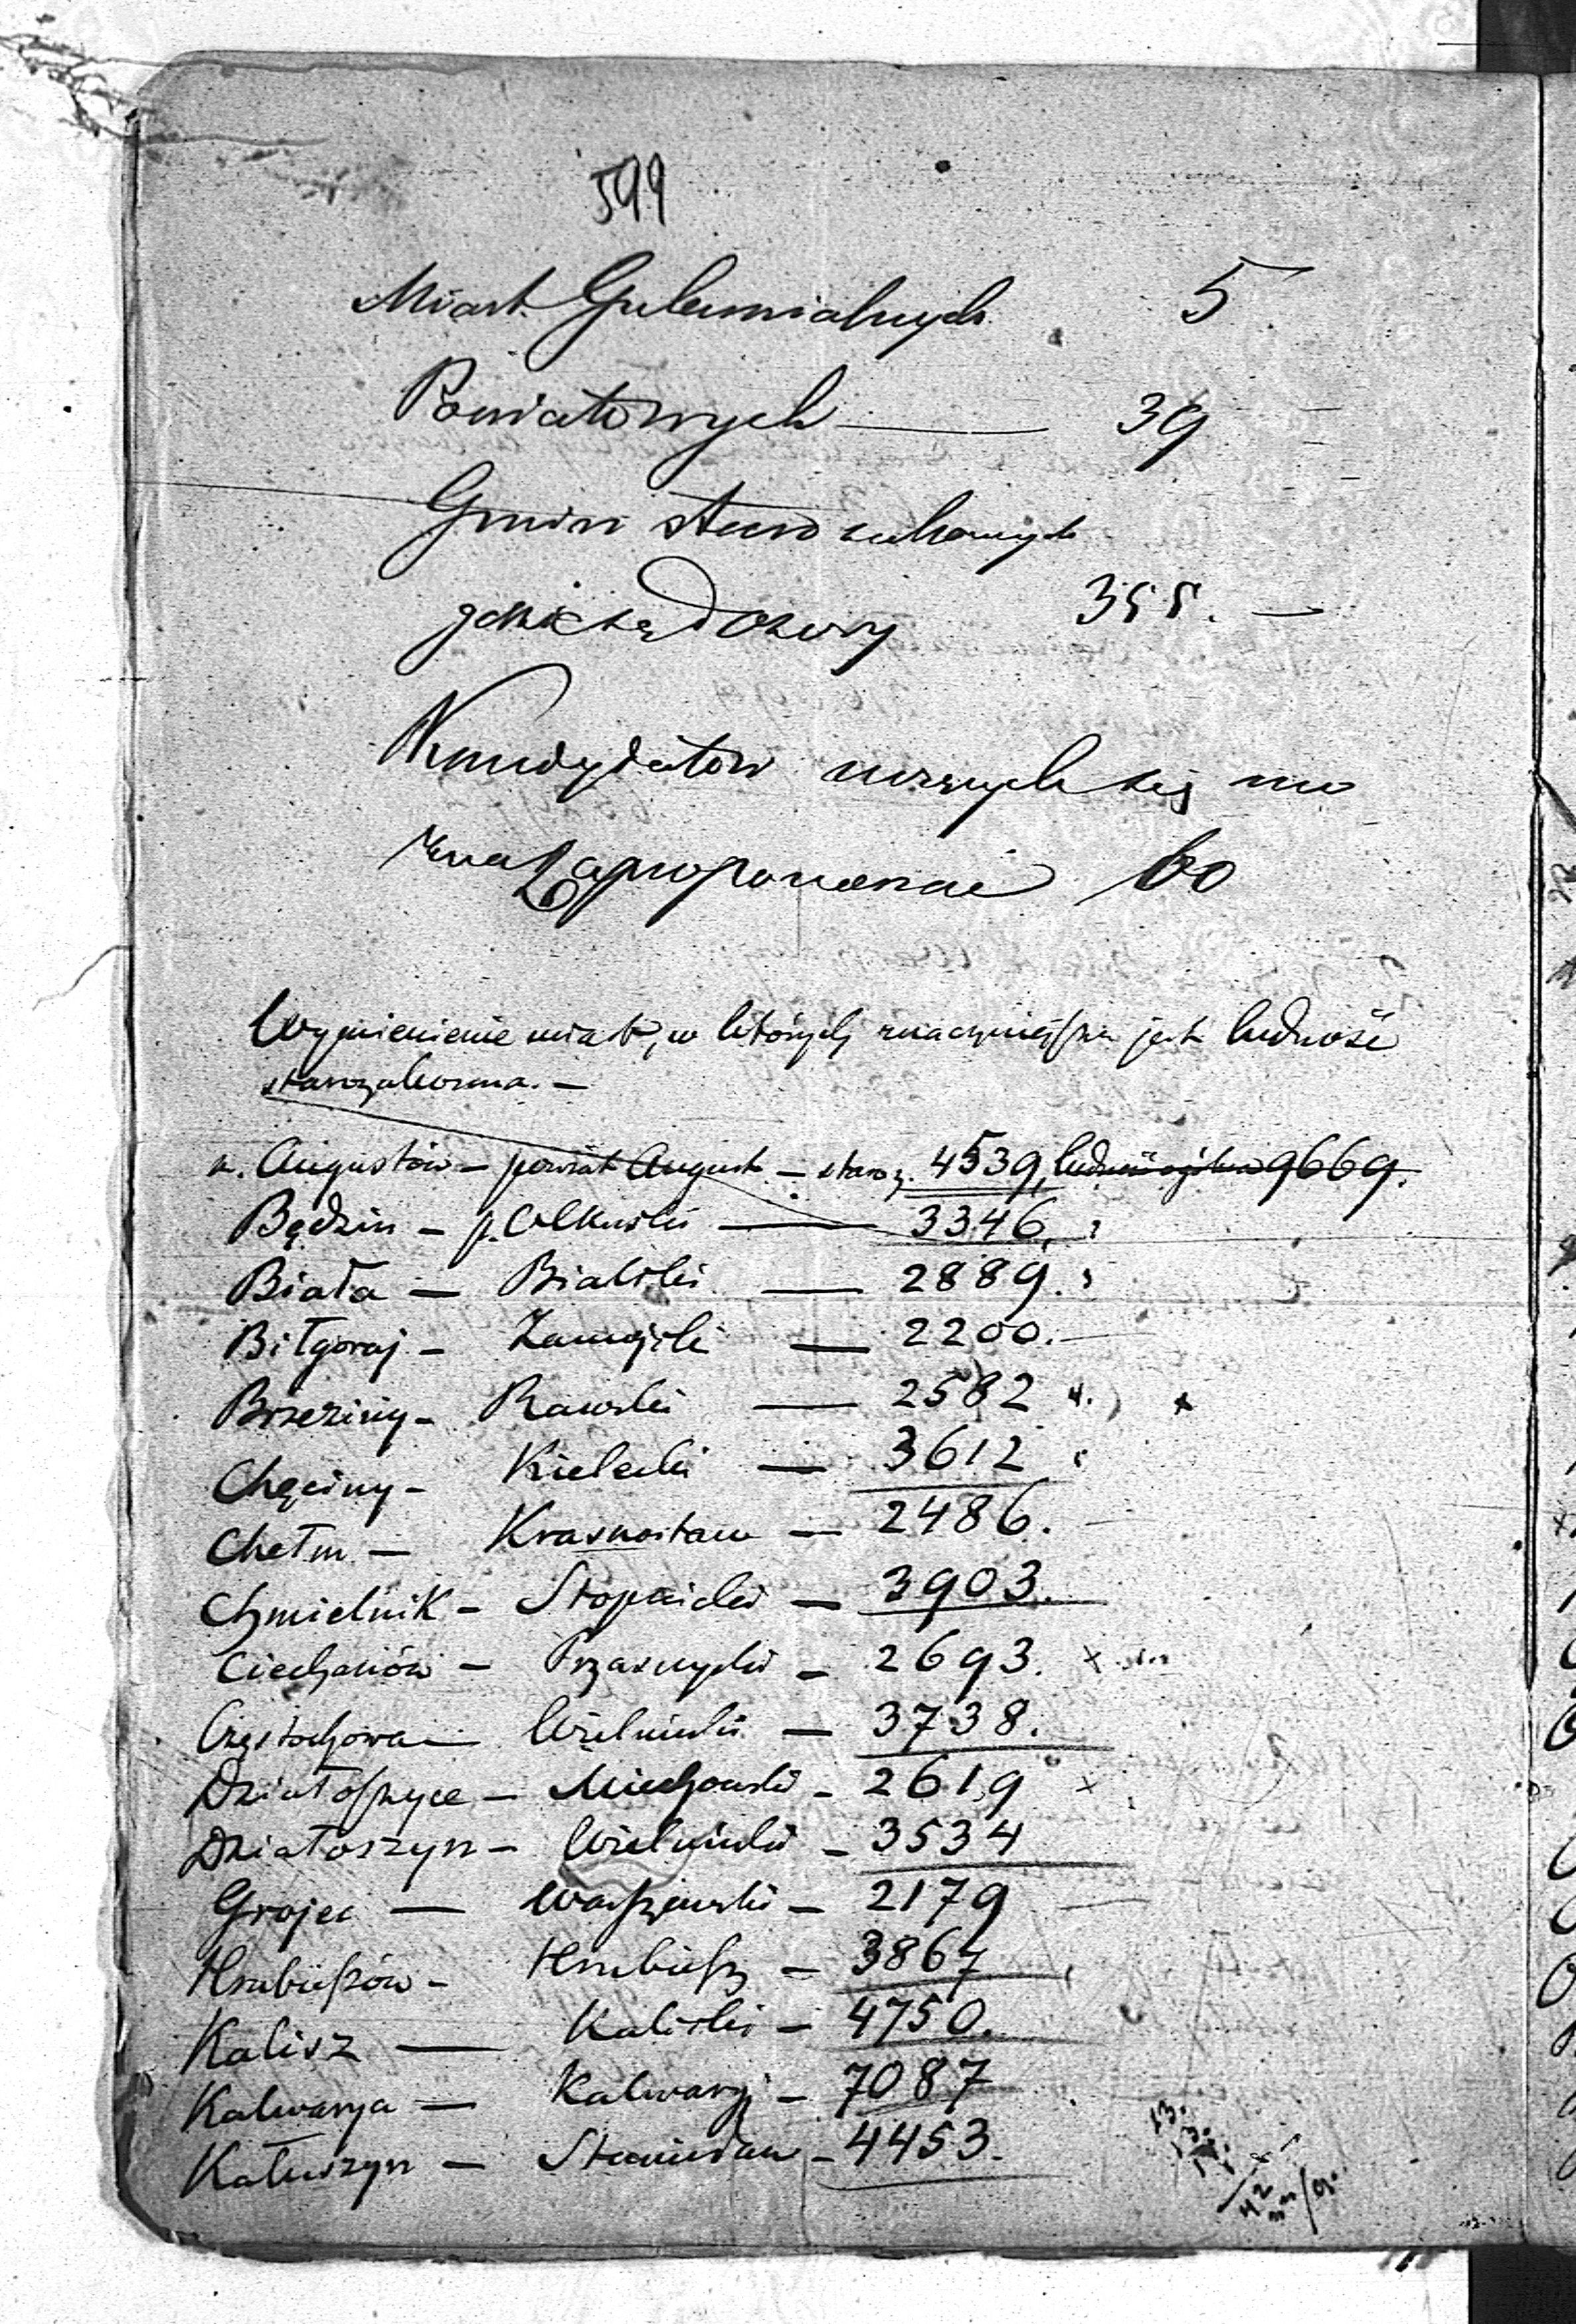 599
Miast Gubernialnych 5
Powiatowych — 39
Gmin starozakonnych
355. —
Kandydatów
zaproponować 60
Wymienienie miast, w których znaczniejsza jest ludność
starozakonna. —
m. Augustów — powiat August — staroz. 4539, 9669.
Będzin — p. Olkuski — 3346,
Biała — Bialski — 2889.
Biłgoraj — Zamojski — 2200. —
Brzeziny — Rawski — 2582 x
Chęciny — Kielecki — 3612
Chełm — Krasnostaw — 2486. —
Chmielnik — Stopnicki — 3903.
Ciechanów — Przasnyski — 2693. x
Częstochowa — Wieluński — 3738.
Działoszyce — Miechowski — 2619 x
Działoszyn — Wieluński — 3534
Grojec — Warszawski — 2179 —
Hrubieszów — Hrubiesz — 3867
Kalisz — Kaliski — 4750.
Kalwarya — Kalwaryj — 7087
Kałuszyn — Stanisław — 4453.